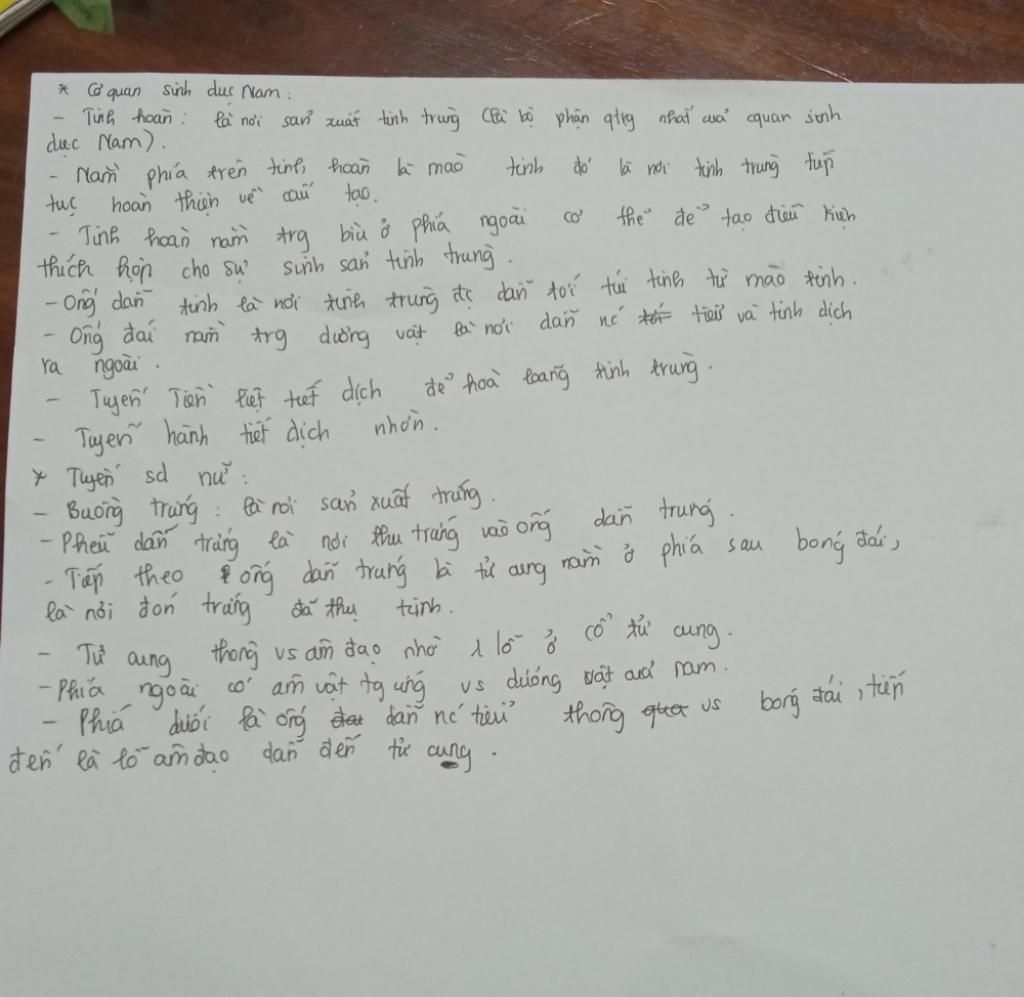 * Cơ quan sinh dục Nam:
- Tinh hoàn: là nơi sản xuất tinh trùng (là bộ phận qtrg nhất của cquan sinh
dục Nam).
- Nằm phía trên tinh hoàn là mào tinh đó là nơi tinh trùng tiếp
tục hoàn thiện về cấu tạo.
- Tinh hoàn nằm trg bìu ở phía ngoài cơ thể để tạo điều kiện
thích hợp cho sự sinh sản tinh trùng.
- Ống dẫn tinh là nơi tinh trùng đc dẫn tới túi tinh từ mào tinh.
- Ống đái nằm trg dương vật là nơi dẫn nc tới tiểu và tinh dịch
ra ngoài.
- Tuyến Tiền liệt tiết dịch để hoà loãng tinh trùng.
- Tuyến hành tiết dịch nhờn.
* Tuyến sd nữ:
- Buồng trứng: là nơi sản xuất trứng.
- Phễu dẫn trứng là nơi thu trứng vào ống dẫn trứng.
- Tiếp theo ống dẫn trứng là tử cung nằm ở phía sau bóng đái,
là nơi đón trứng đã thụ tinh.
- Tử cung thông vs âm đạo nhờ 1 lỗ ở cổ tử cung.
- Phía ngoài có âm vật tg ứng vs dương vật của nam.
- Phía dưới là ống đái dẫn nc tiểu thông qua vs bóng đái, tiếp
đến là lỗ âm đạo dẫn đến tử cung.